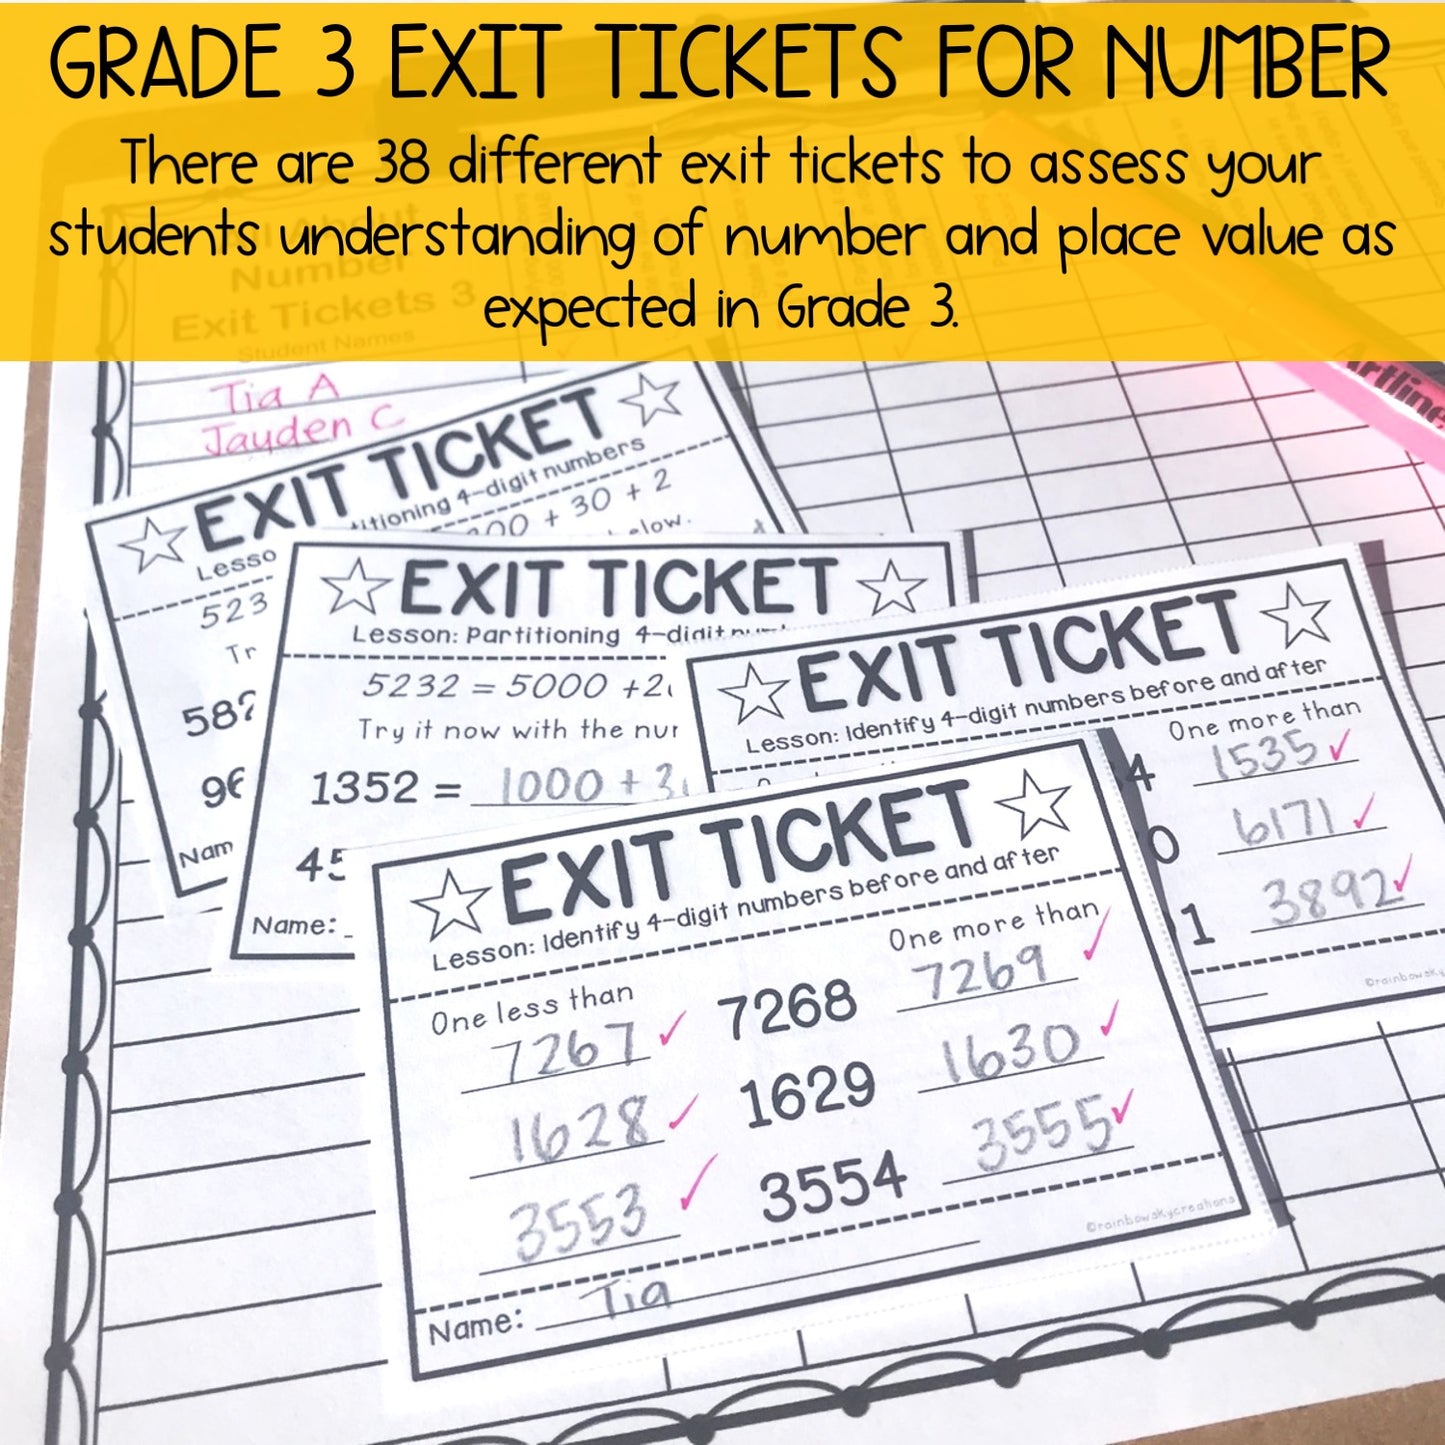 GRADE 3 EXIT TICKETS FOR NUMBER
There are 38 different exit tickets to assess your
students understanding of number and place value as
expected in Grade 3.
All About
Number
Exit Tickets 3
Student Names
Tia A
Jayden C
Artline
EXIT TICKET
4-digit numbers
+ 30 + 2
523
EXIT TICKET
Lesson: Partitioning 4-digit
5232 = 5000 +
Try it now with the
1352 = 1000 +
Name:
EXIT TICKET
Lesson: Identify 4-digit numbers before and after
One more than
1535
6171
3892
EXIT TICKET
Lesson: Identify 4-digit numbers before and after
One less than
One more than
7267 7268 7269
1628 1629 1630
3553 3554 3555
©rainbowskycreations
Name: Tia